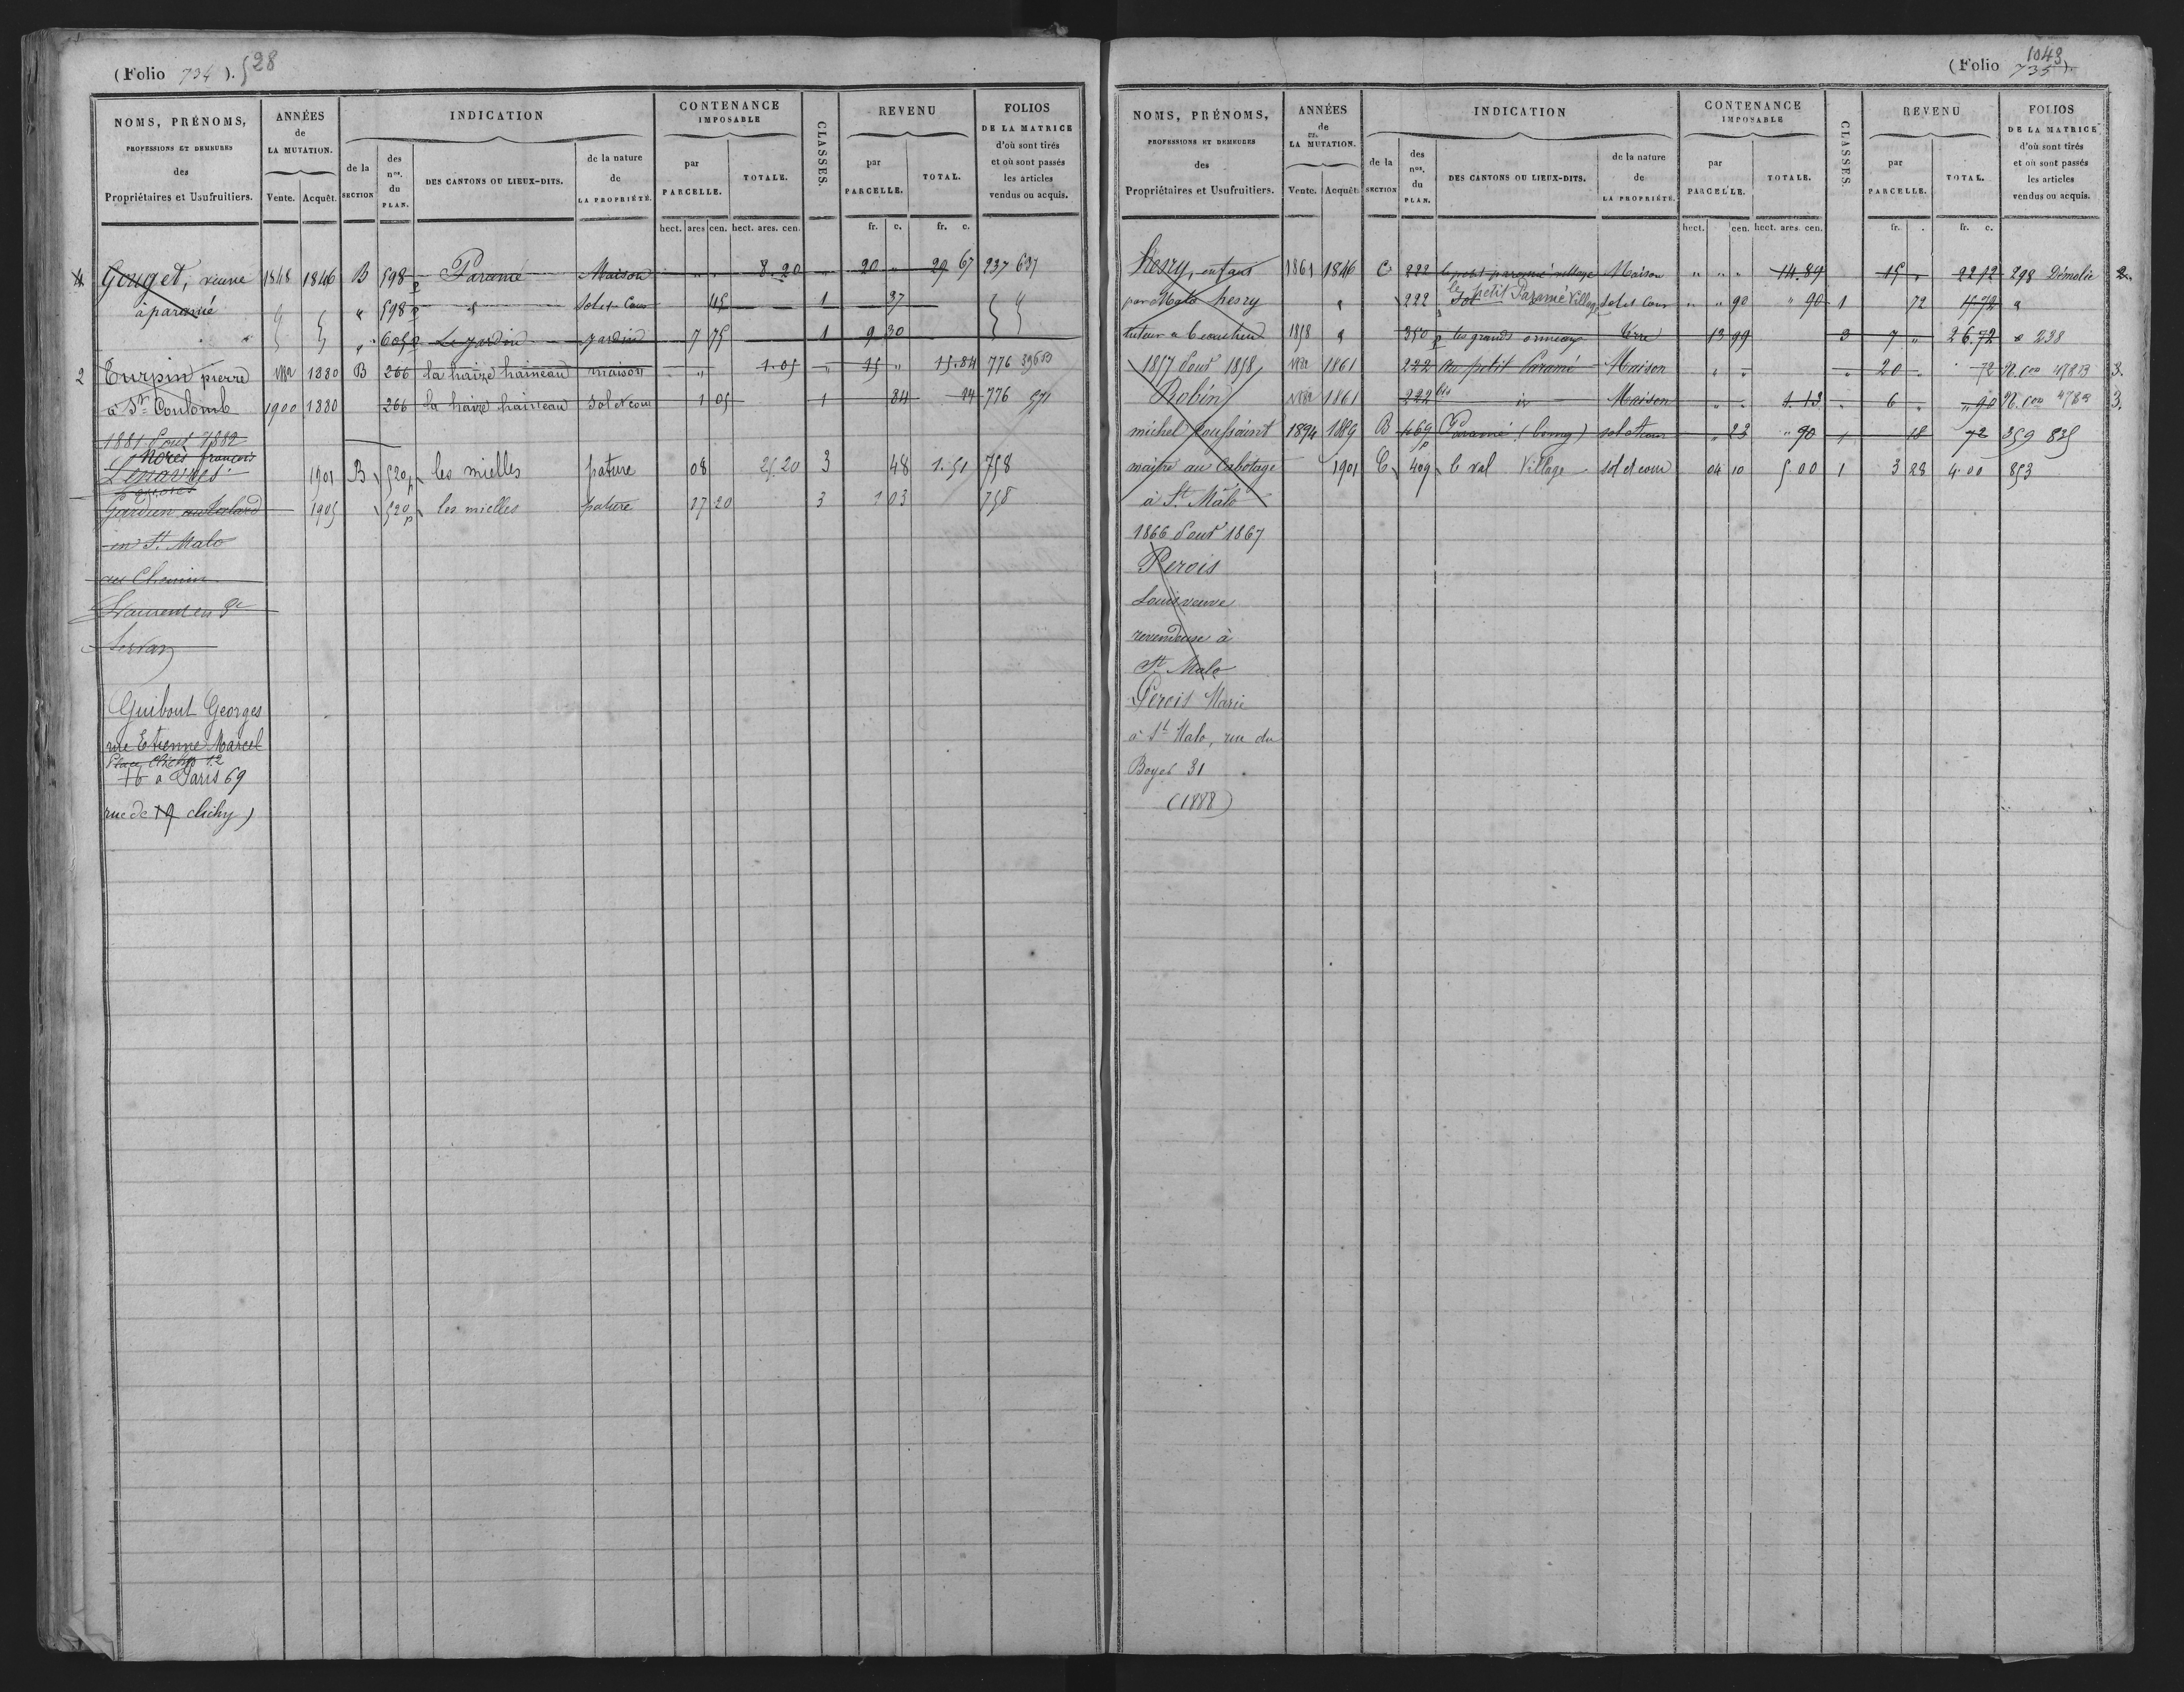 (Folio 734). 528
NOMS, PRÉNOMS, PROFESSIONS ET DEMEURES des Propriétaires et Usufruitiers.
ANNÉES de LA MUTATION. Vente. Acquêt.
INDICATION de la SECTION des nos. du PLAN. DES CANTONS OU LIEUX-DITS. de la nature de LA PROPRIÉTÉ.
CONTENANCE IMPOSABLE par PARCELLE. TOTALE.
CLASSES.
REVENU par PARCELLE. TOTAL.
FOLIOS DE LA MATRICE d'où sont tirés et où sont passés les articles vendus ou acquis.
hect. ares cen. hect. ares. cen. fr. c. fr. c.
4 Gouget, veuve 1848 1846 B 598 p Paramé Maison " " 8.20 " 20 " 29 67 237 637
à paramé " 598 p " Sol et Cour 45 1 37
" 605 p Le jardin jardin 7 75 1 9 30
2 Turpin pierre 1882 1880 B 266 la haize haineau maison " 1.05 " 15 " 15.84 776
à St Coulomb 1900 1880 266 la haize haineau Sol et cour 1 05 1 84 776 571
1881 pour 1882
Norès françois
1901 B 520 p les mielles pature 08 25.20 3 48 1.51 758
Gardien 1905 520 p les mielles pature 17 20 3 1 03 758
en St. Malo
au Chemin
Servan
Guibout Georges
rue Etienne Marcel
Place Clichy 12
16 a Paris 69
rue de clichy)
(Folio 735). 1043
NOMS, PRÉNOMS, PROFESSIONS ET DEMEURES des Propriétaires et Usufruitiers.
ANNÉES de LA MUTATION. Vente. Acquêt.
INDICATION de la SECTION des nos. du PLAN. DES CANTONS OU LIEUX-DITS. de la nature de LA PROPRIÉTÉ.
CONTENANCE IMPOSABLE par PARCELLE. TOTALE.
CLASSES.
REVENU par PARCELLE. TOTAL.
FOLIOS DE LA MATRICE d'où sont tirés et où sont passés les articles vendus ou acquis.
hect. cen. hect. ares. cen. fr. . fr. c.
hesry, enfans 1861 1846 C 222 le petit paramé village Maison " " " 14.89 15 " 22 12 298 Démolie 2
par Malo hesry " 222 le petit Paramé Village Sol et Cour " " 90 " 90 1 72 "
tuteur a 1858 " 350 p les grands ormeaux terre 13 99 3 7 " 26.72 " 238
1857 pour 1858 1882 1861 222 Au petit Paramé Maison " " " 20 " 72 3.
Robin 1882 1861 222 bis id Maison " " 1.13 " 6 " " 90 3.
michel toussaint 1894 1889 B 469 p Paramé (bourg) sol et cour " 23 " 90 1 18 72 359 835
maître au Cabotage 1901 C 409 le val Village sol et cour 04 10 5 00 1 3 28 4 00 853
à St. Malo
1866 pour 1867
Perois
Louis veuve
revendeuse à
St. Malo
Perois Marie
à St Malo, rue du
Boyer 31
(1888)